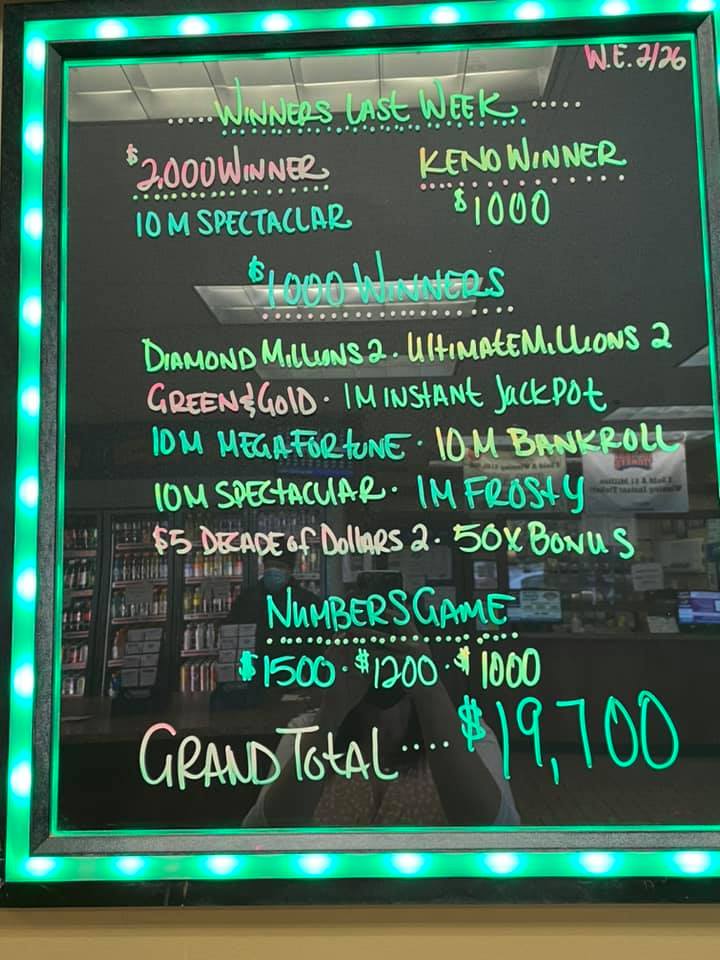 W.E. 2/26
.....WINNERS LAST WEEK.....
$2,000 WINNER
10 M SPECTACLAR
KENO WINNER
$1000
$1000 WINNERS
DIAMOND MILLIONS 2 · ULTIMATE MILLIONS 2
GREEN & GOLD · 1M INSTANT JACKPOT
10 M MEGA FORTUNE · 10 M BANKROLL
10M SPECTACULAR · 1M FROSTY
$5 DECADE of DOLLARS 2 · 50X BONUS
NUMBERS GAME
$1500 · $1200 · $1000
GRAND TOTAL .... $19,700